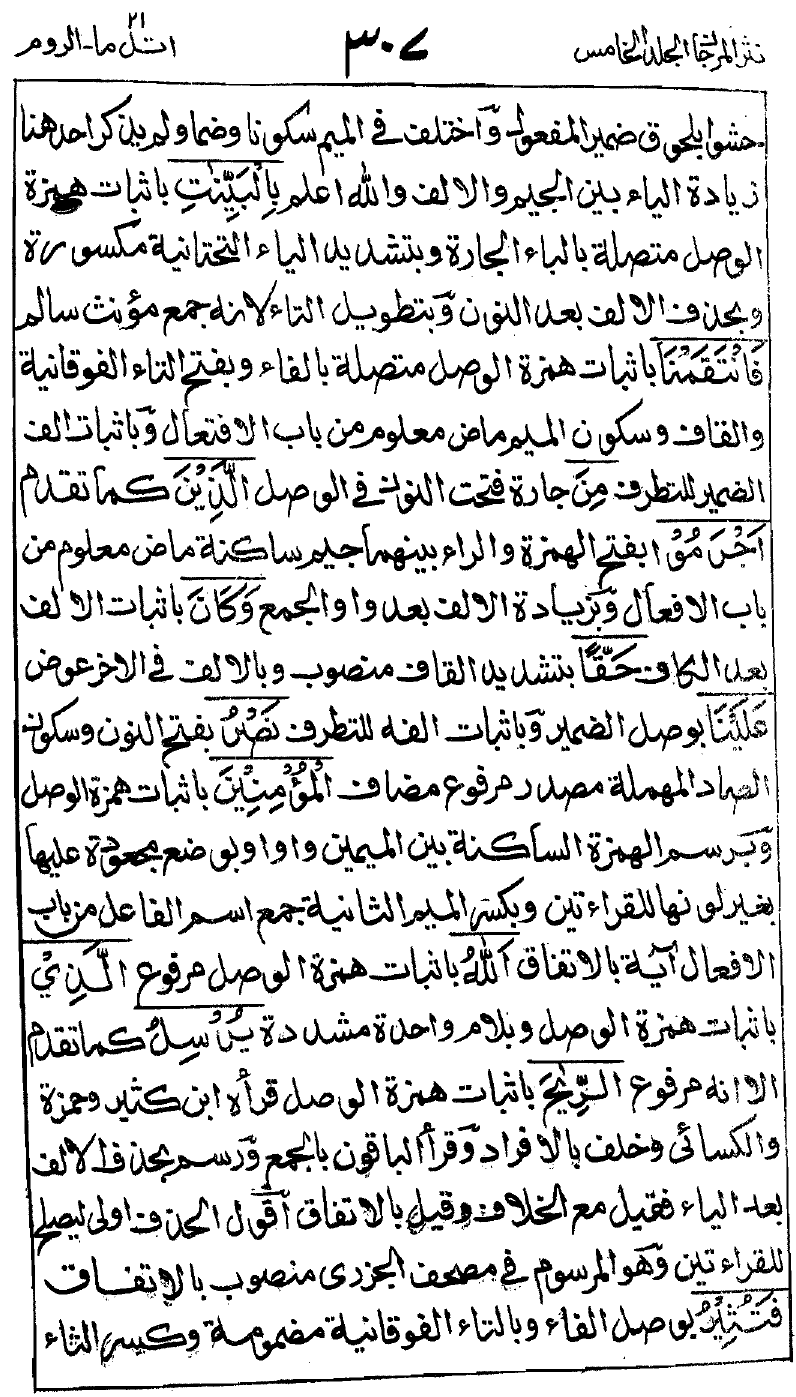 نثر المرجان المجلد الخامس ٣٠٧ اتل ما-الروم ٢١
حشوا بلحوق ضمير المفعول وَاختلف في الميم سكونا وضما ولم يذكر احد هنا
زيادة الياء بين الجيم والالف والله اعلم بِالْبَيِّنٰتِ باثبات همزة
الوصل متصلة بالباء الجارة وبتشديد الياء التحتانية مكسورة
وبحذف الالف بعد النون وَبتطويل التاء لانه جمع مؤنث سالم
فَانْتَقَمْنَا باثبات همزة الوصل متصلة بالفاء وبفتح التاء الفوقانية
والقاف وسكون الميم ماض معلوم من باب الافتعال وَباثبات الف
الضمير للتطرف مِنَ جارة فتحت النون في الوصل الَّذِيْنَ كما تقدم
اَجْرَمُوْا بفتح الهمزة والراء بينهما جيم ساكنة ماض معلوم من
باب الافعال وَبزيادة الالف بعد واو الجمع وَكَانَ باثبات الالف
بعد الكاف حَقًّا بتشديد القاف منصوب وبالالف في الاخر عوض
عَلَيْنَا بوصل الضمير وَباثبات الفه للتطرف نَصْرُ بفتح النون وسكون
الصاد المهملة مصدر مرفوع مضاف الْمُؤْمِنِيْنَ باثبات همزة الوصل
وَبرسم الهمزة الساكنة بين الميمين واوا وبوضع مجعودة عليها
بغير لونها للقراءتين وبكسر الميم الثانية جمع اسم الفاعل من باب
الافعال آية بالاتفاق اَللّٰهُ باثبات همزة الوصل مرفوع الَّذِيْ
باثبات همزة الوصل وبلام واحدة مشددة يُرْسِلُ كما تقدم
الا انه مرفوع الرِّيٰحَ باثبات همزة الوصل قرأه ابن كثير وحمزة
والكسائى وخلف بالافراد وَقرأ الباقون بالجمع وَرسم بحذف الالف
بعد الياء فقيل مع الخلاف وقيل بالاتفاق أقول الحذف اولى ليصلح
للقراءتين وَهو المرسوم في مصحف الجزرى منصوب بالاتفاق
فَتُثِيْرُ بوصل الفاء وبالتاء الفوقانية مضمومة وكسر الثاء